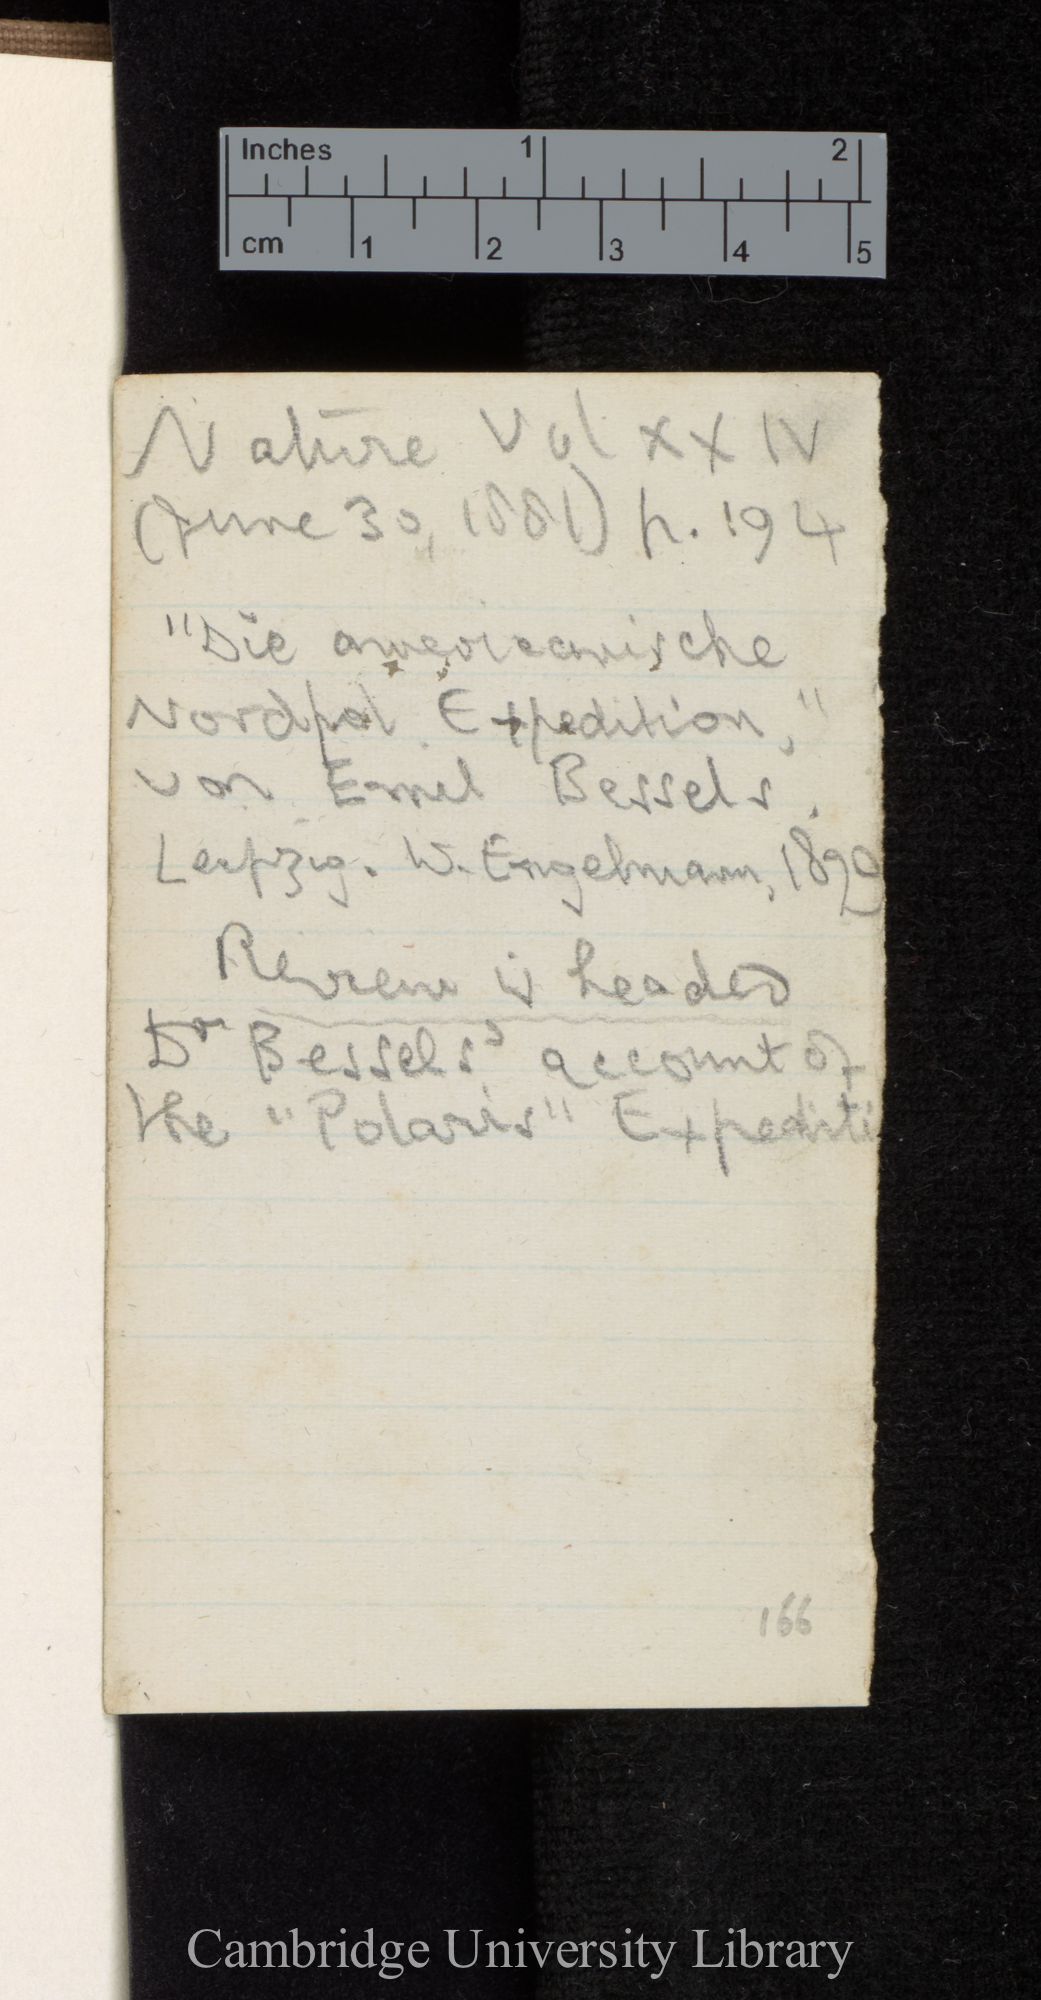 Inches 1 2
cm 1 2 3 4 5
Nature Vol XXIV
(June 30, 1881) p. 194
"Die americanische
Nordpol Expedition,"
von Emil Bessels.
Leipzig. W. Engelmann,
Review is headed
Dr Bessels' account of
the "Polaris" Expediti
166
Cambridge University Library